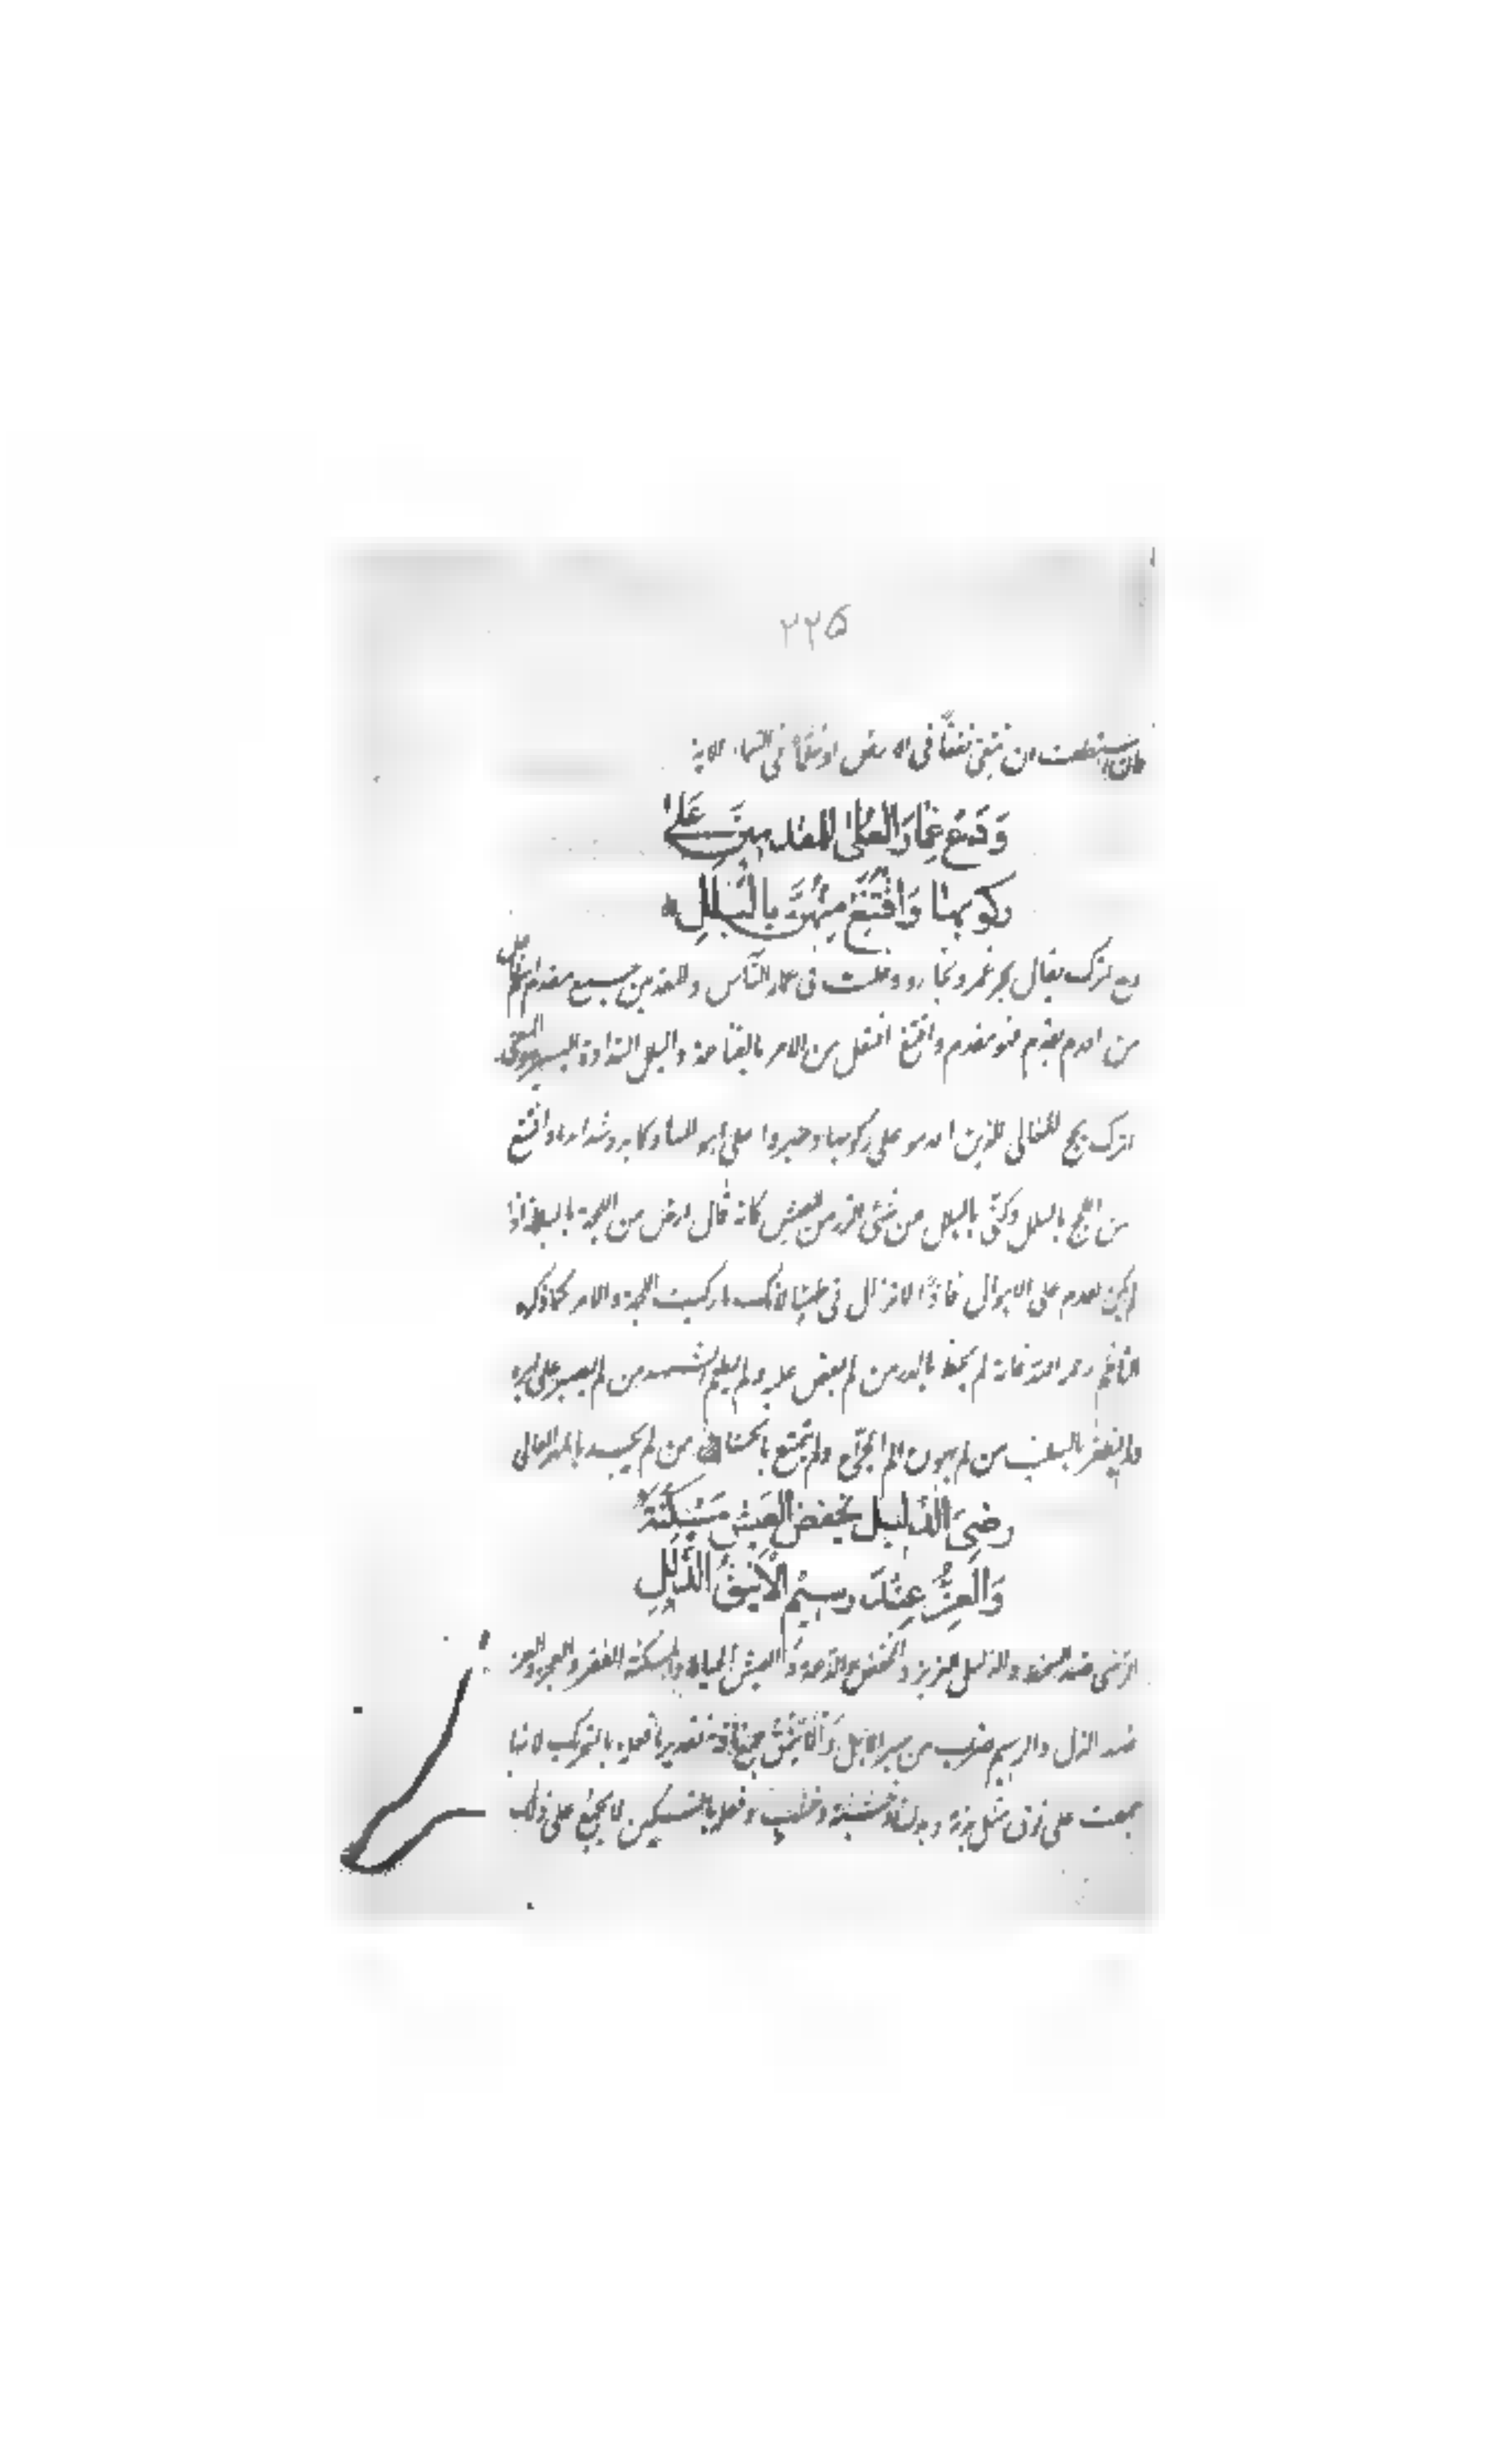 ٢٢٥
فان استطعت ان تبتغى نفقا فى الارض او سلما فى السماء الاية
وَدَعْ غِمَارَ العُلَى للمقدمِينَ عَلَى
ركوبها وَاقْتَنِعْ مِنْهُنَّ بِالبَلَلِ
دع اترك يقال بحر غمر وبحار ودخلت فى غمار الناس والمقدمين جمع مقدم
من اقدم يقدم فهو مقدم واقتنع افتعل من الامر بالقناعة والبلل النداوة اليسيرة
اترك لجج المعالى للذين اقدموا على ركوبها وصبروا على اهوالها وكابدوا شدائدها واقتنع
من اللجج بالبلل وكنى بالبلل من شئ نزر من العيش كانه قال ارض من اللجة بالبلة اذا
لم تكن تقدم على الاهوال فاذا لا تزال فى لانك ما ركبت اللجة والامر كما ذكره
الناظم رحمه الله فانه لم يحظ بالدر من لم يغص عليه ولم يطعم الشهد من لم يصبر على
ولم يظفر من لم يهون الم الجراح ولم يتمتع بالحسناء من لم يجد بالمهر الغالى
رضِىَ الذليل بخفض العَيش مَسْكَنَةٌ
وَالعِزُّ عِنْدَ رسِيْم الأَيْنُقِ الذُّلُلِ
الرضى ضد السخط والذليل العزيز والخفض الدعة والعيش الحياة والمسكنة الفقر والعجز والعز
ضد الذل والرسيم ضرب من سير الابل والاينق جمع ناقة تقديرها فعلة بالتحريك لانها
جمعت على نوق مثل بدنة وبدن وخشبة وخشب وفعلة بالتسكين لا يجمع على ذلك